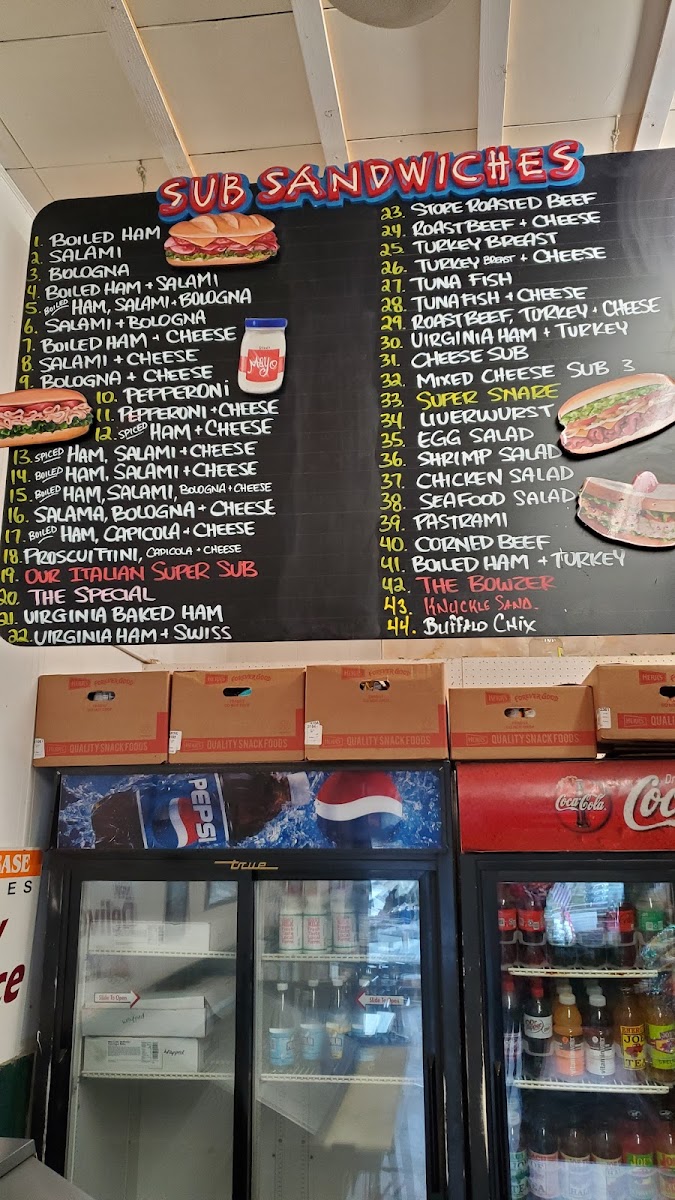 SUB SANDWICHES
1. BOILED HAM
2. SALAMI
3. BOLOGNA
4. BOILED HAM + SALAMI
5. BOILED HAM, SALAMI + BOLOGNA
6. SALAMI + BOLOGNA
7. BOILED HAM + CHEESE
8. SALAMI + CHEESE
9. BOLOGNA + CHEESE
10. PEPPERONI
11. PEPPERONI + CHEESE
12. SPICED HAM + CHEESE
13. SPICED HAM, SALAMI + CHEESE
14. BOILED HAM, SALAMI + CHEESE
15. BOILED HAM, SALAMI, BOLOGNA + CHEESE
16. SALAMA, BOLOGNA + CHEESE
17. BOILED HAM, CAPICOLA + CHEESE
18. PROSCUITTINI, CAPICOLA + CHEESE
19. OUR ITALIAN SUPER SUB
20. THE SPECIAL
21. VIRGINIA BAKED HAM
22. VIRGINIA HAM + SWISS
MAYO
23. STORE ROASTED BEEF
24. ROAST BEEF + CHEESE
25. TURKEY BREAST
26. TURKEY BREAST + CHEESE
27. TUNA FISH
28. TUNA FISH + CHEESE
29. ROAST BEEF, TURKEY + CHEESE
30. VIRGINIA HAM + TURKEY
31. CHEESE SUB
32. MIXED CHEESE SUB 3
33. SUPER SNARE
34. LIVERWURST
35. EGG SALAD
36. SHRIMP SALAD
37. CHICKEN SALAD
38. SEAFOOD SALAD
39. PASTRAMI
40. CORNED BEEF
41. BOILED HAM + TURKEY
42. THE BOWZER
43. KNUCKLE SAND.
44. BUFFALO CHIX
QUALITY SNACK FOODS
QUALITY SNACK FOODS
QUALITY SNACK FOODS
QUALITY SNACK FOODS
QUALI
PEPSI
true
Coca-Cola
Coc
ASE
ES
Slide To Open
Slide To Open